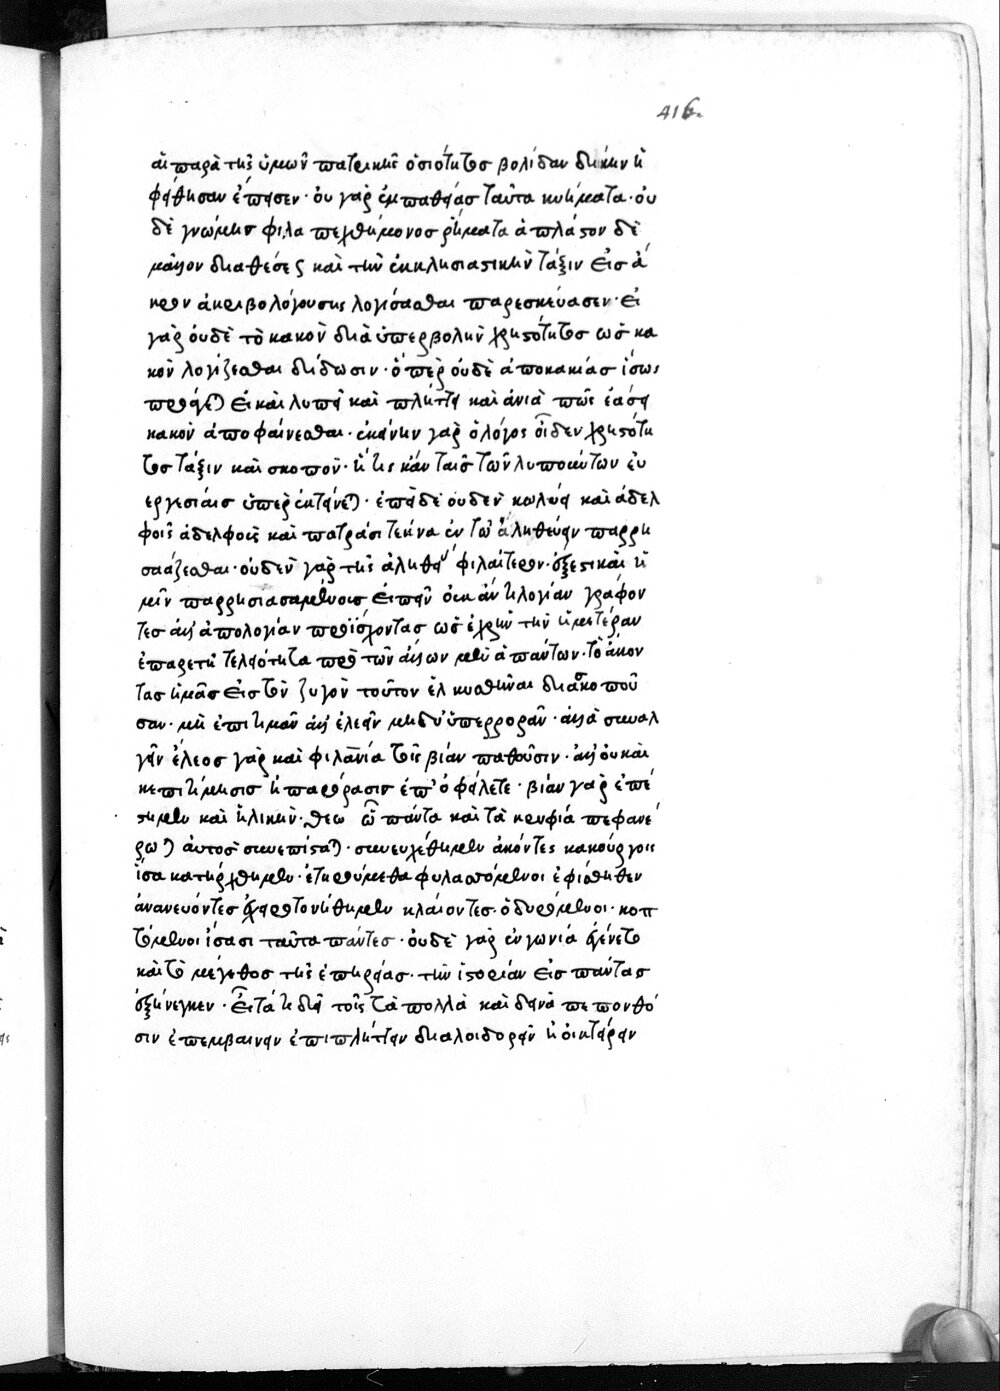 416.
αἱ παρὰ τῆς ὑμῶν πατρικῆς ὁσιότητος βολίδων δίκην ἢ
φέθησαν ἔπεισεν· οὐ γὰρ ἐμπαθείας ταῦτα κυήματα· οὐ
δὲ γνώμης φιλαπεχθήμονος ῥήματα ἀπλάστου δὲ
μᾶλλον διαθέσεως καὶ τὴν ἐκκλησιαστικὴν τάξιν εἰς ἄ
κρον ἀκριβολογούσης λογίσασθαι παρεσκεύασεν· εἰ
γὰρ οὐδὲ τὸ κακὸν διὰ ὑπερβολὴν χρηστότητος ὡς κα
κὸν λογίζεσθαι δίδωσιν· ὅπερ οὐδὲ ἀπὸ κακίας ἴσως
προάγεται εἰ καὶ λυπεῖ καὶ πλήττει καὶ ἀνιᾷ πῶς ἐάσει
κακὸν ἀποφαίνεσθαι· ἐκείνην γὰρ ὁ λόγος οἶδεν χρηστότη
τος τάξιν καὶ σκοπὸν· ἥ τις κἀν ταῖς τῶν λυπούντων εὐ
εργεσίαις ὑπερεκτείνεται· ἐπεὶ δὲ οὐδὲν κωλύει καὶ ἀδελ
φοῖς ἀδελφοὺς καὶ πατράσι τέκνα ἐν τῷ ἀληθεύειν παρρη
σιάζεσθαι· οὐδὲν γὰρ τῆς ἀληθείας φιλαίτερον· ἔξεστι καὶ ἡ
μῖν παρρησιασαμένοις εἰπεῖν οὐκ ἀντιλογίαν γράφον
τες ἀλλ' ἀπολογίαν προϊσχοντας ὡς ἐχρῆν τὴν ὑμετέραν
ἐπαρετῆ τελειότητα πρὸ τῶν ἄλλων μὲν ἁπάντων· τὸ ἄκον
τας ἡμᾶς εἰς τὸν ζυγὸν τοῦτον ἑλκυσθῆναι διασκοποῦ
σαν· μὴ ἐπιτιμᾶν ἀλλ' ἐλεεῖν μηδ' ὑπερορᾶν· ἀλλὰ συναλ
γεῖν ἔλεος γὰρ καὶ φιλανία τοῖς βίαν παθοῦσιν· ἀλλ' οὐ καὶ
κεπιτίμησις ἢ παρόρασις ἐπ' ὀφείλετε· βίαν γὰρ ἐπέ
στημεν καὶ ἡλίκην· θεῷ ᾧ πάντα καὶ τὰ κρύφια πεφανέ
ρωται αὐτὸς συνεπίσταται· συνευχέθημεν ἄκοντες κακούργοις
ἴσα κατήρχθημεν· ἐτηρούμεθα φυλαττόμενοι ἐψηφίσθημεν
ἀνανεύοντες ἐχειροτονήθημεν κλαίοντες· ὀδυρόμενοι· κοπ
τόμενοι ἴσασι ταῦτα πάντες· οὐδὲ γὰρ ἐν γωνίᾳ ἐγένετο
καὶ τὸ μέγεθος τῆς ἐπηρείας· τὴν ἱστορίαν εἰς πάντας
ἐξήνεγκεν· εἶτά τι δεῖ τοῖς τὰ πολλὰ καὶ δεινὰ πεπονθό
σιν ἐπεμβαίνειν ἐπιπλήττειν διαλοιδορεῖν ἢ οἰκτείρειν